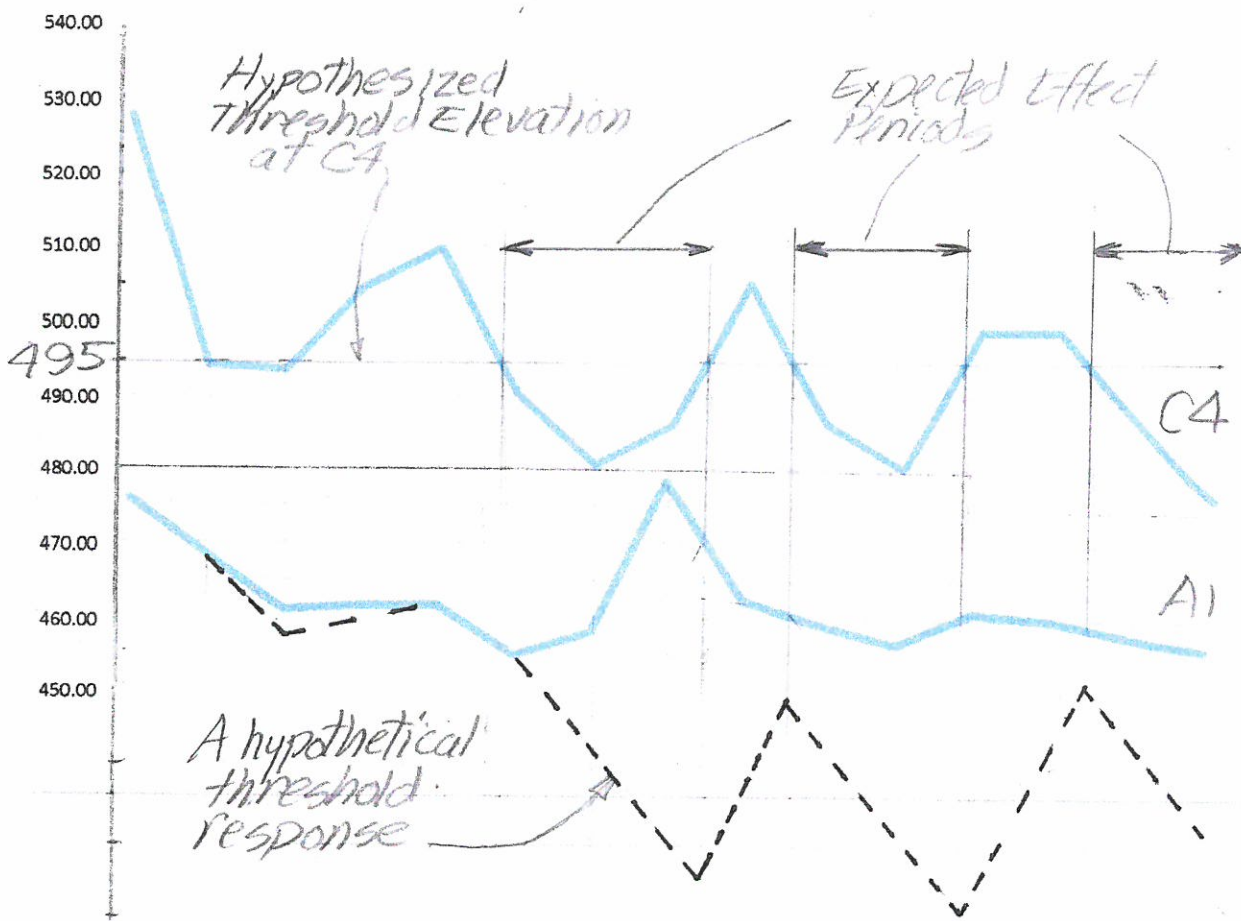 540.00
530.00
520.00
510.00
500.00
495
490.00
480.00
470.00
460.00
450.00
Hypothesized
Threshold Elevation
at C4
Expected Effect
Periods
C4
A1
A hypothetical
threshold
response